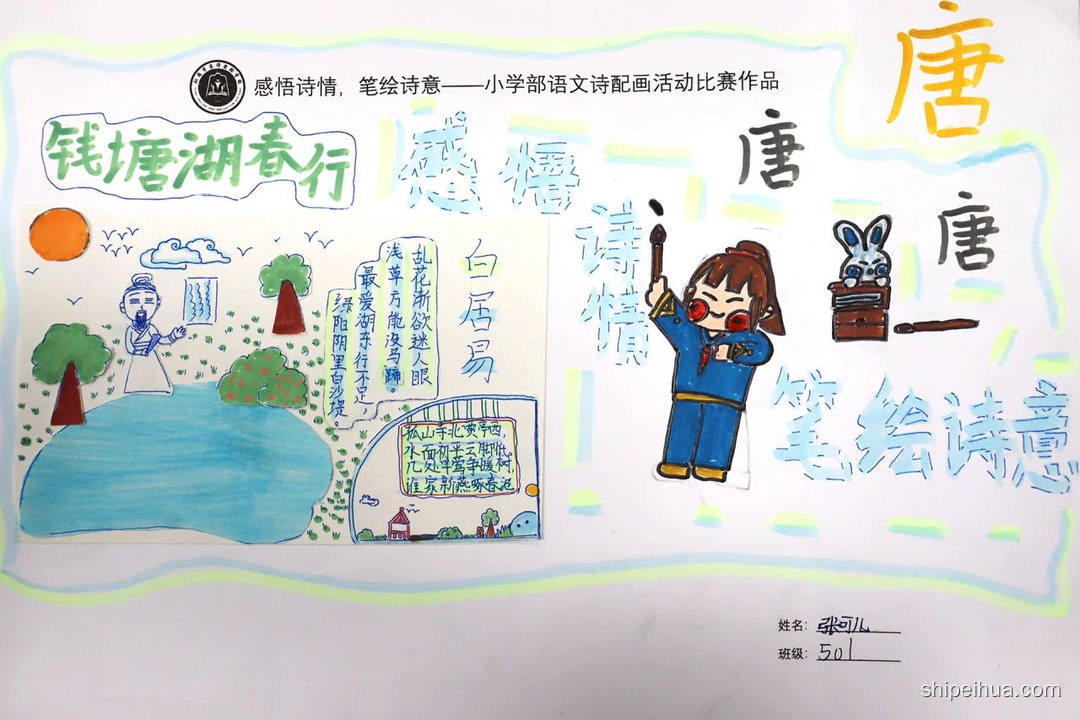 感悟诗情，笔绘诗意——小学部语文诗配画活动比赛作品
唐
钱塘湖春行
感悟
诗情
唐
唐
白居易
孤山寺北贾亭西，
水面初平云脚低。
几处早莺争暖树，
谁家新燕啄春泥
乱花渐欲迷人眼
浅草方能没马蹄。
最爱湖东行不足
绿阳阴里白沙堤。
笔绘诗意
姓名：张可儿
班级：501
shipeihua.com